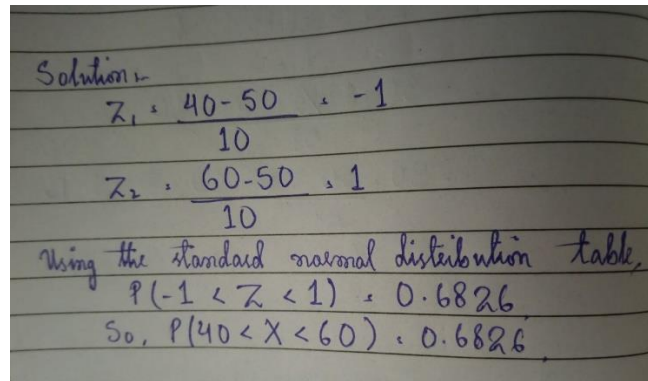 Solution:-
Z₁ = 40-50 = -1
10
Z₂ = 60-50 = 1
10
Using the standard normal distribution table,
P(-1 < Z < 1) = 0.6826
So, P(40 < X < 60) = 0.6826